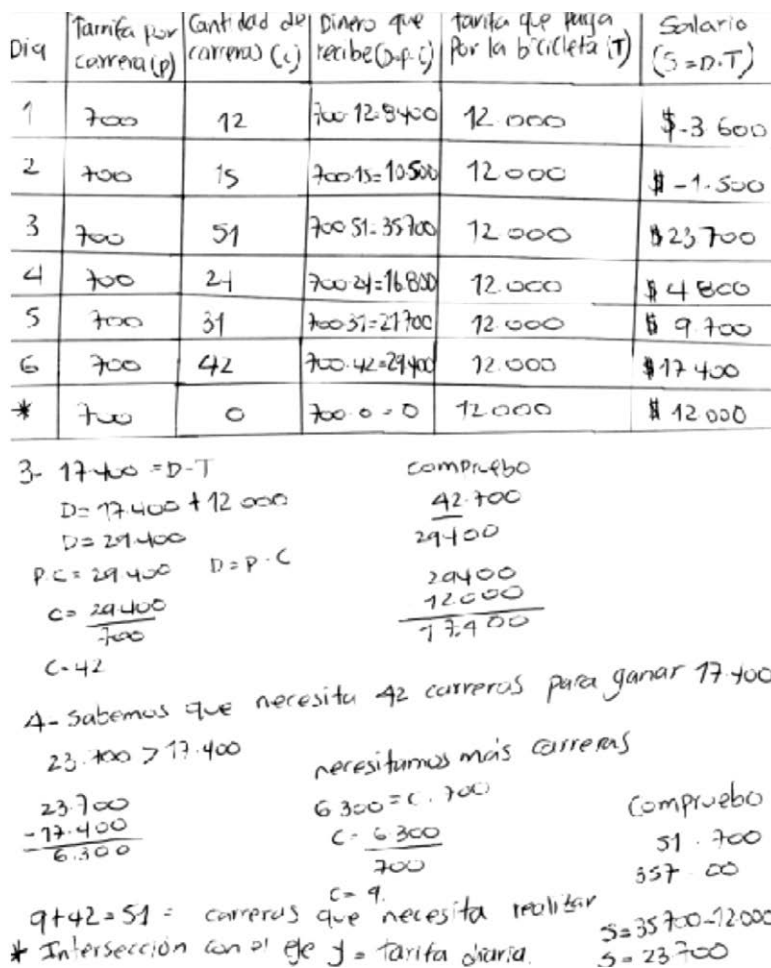 Dia | Tarrifa por carrera (p) | Cantidad de carreras (c) | Dinero que recibe (D=p.c) | tarifa que paga Por la bicicleta (T) | Salario (S=D-T)
1 | 700 | 12 | 700.12=8400 | 12.000 | $-3.600
2 | 700 | 15 | 700.15=10.500 | 12.000 | $-1.500
3 | 700 | 51 | 700.51=35700 | 12.000 | $23700
4 | 700 | 24 | 700.24=16.800 | 12.000 | $4800
5 | 700 | 31 | 700.31=21700 | 12.000 | $9.700
6 | 700 | 42 | 700.42=29400 | 12.000 | $17400
* | 700 | 0 | 700.0=0 | 12.000 | $12000
3- 17.400 = D-T
D= 17.400 + 12 000
D= 29.400
P.C = 29.400 D = P.C
C = 29.400
700
C=42
compruebo
42.700
29400
29400
12.000
17.400
4- Sabemos que necesita 42 carreras para ganar 17.400
23.700 > 17.400
necesitamos más carreras
23.700
-17.400
6.300
6.300 = C.700
C = 6.300
700
C= 9.
Compruebo
51.700
357 00
9+42=51 = carreras que necesita realizar
S=35700-12000
S=23.700
* Intersección con el eje y = tarifa diaria.